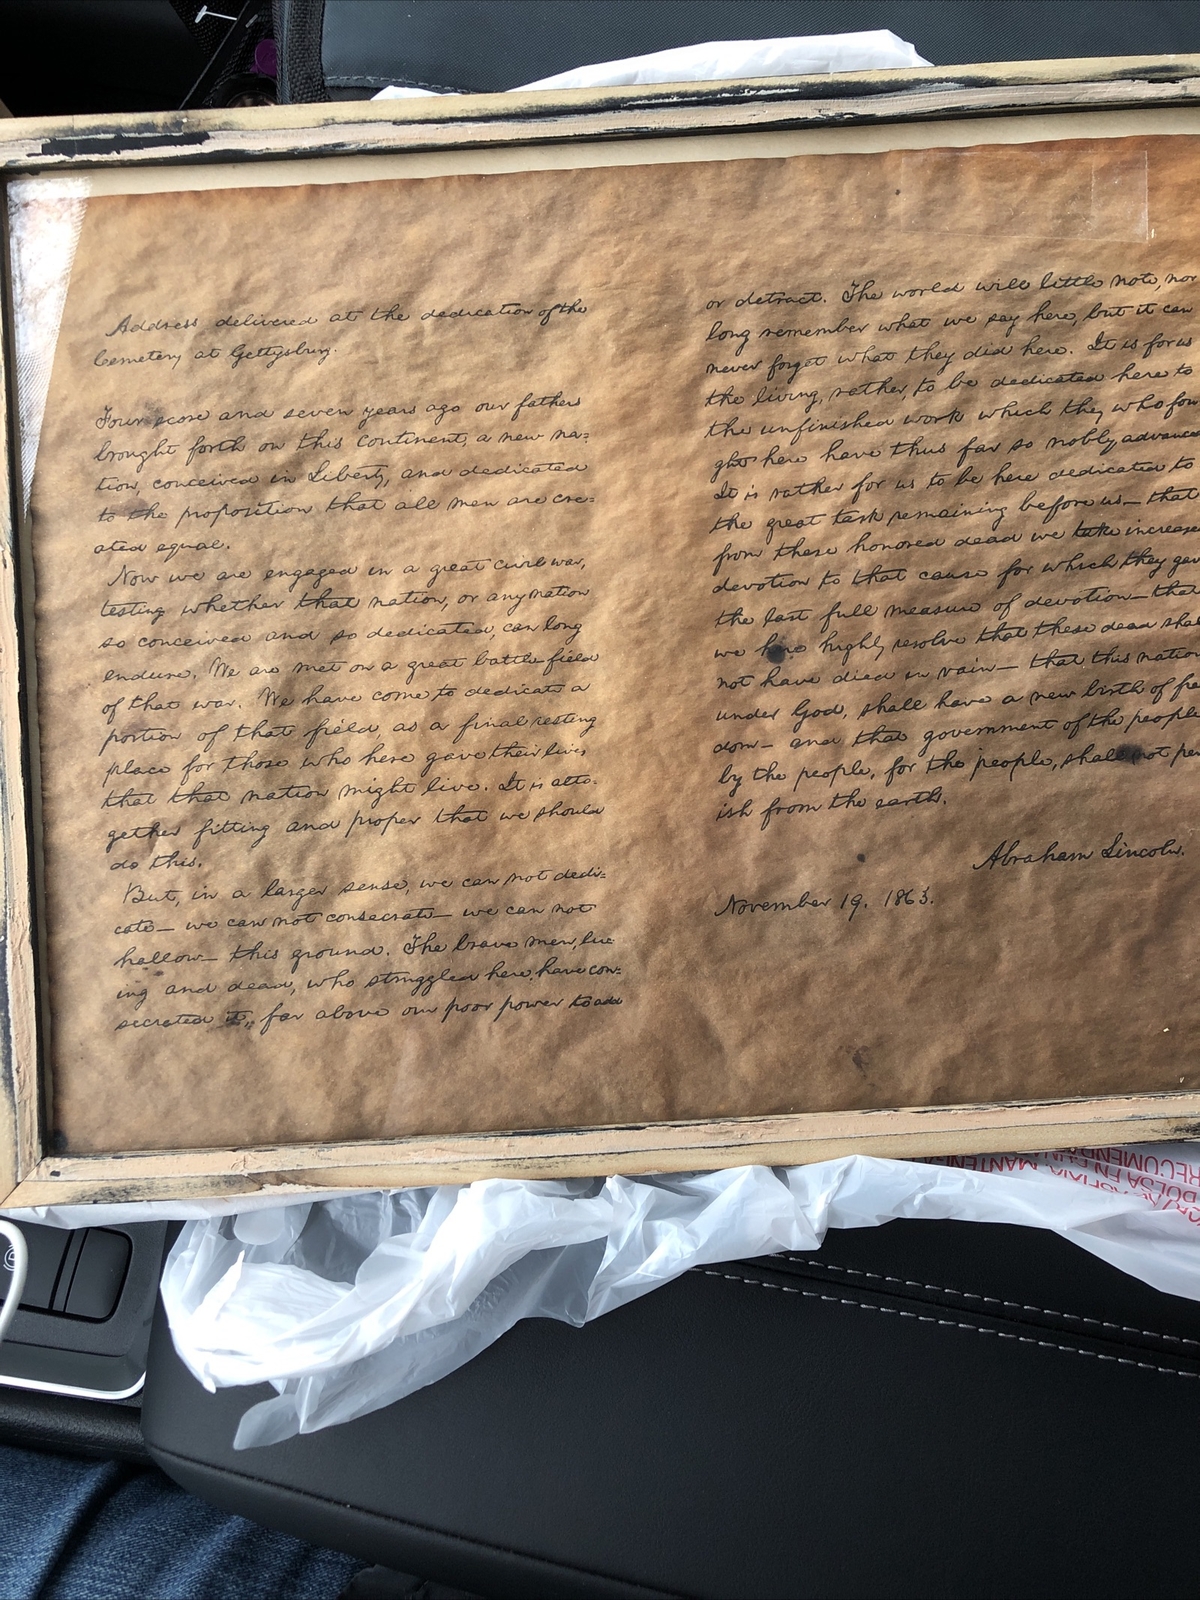 Address delivered at the dedication of the
Cemetery at Gettysburg.
Four score and seven years ago our fathers
brought forth on this continent, a new na=
tion, conceived in Liberty, and dedicated
to the proposition that all men are cre=
ated equal.
Now we are engaged in a great civil war,
testing whether that nation, or any nation
so conceived and so dedicated, can long
endure. We are met on a great battle-field
of that war. We have come to dedicate a
portion of that field, as a final resting
place for those who here gave their lives
that that nation might live. It is alto-
gether fitting and proper that we should
do this.
But, in a larger sense, we can not dedi-
cate— we can not consecrate— we can not
hallow— this ground. The brave men, liv-
ing and dead, who struggled here, have con-
secrated it, far above our poor power to add
or detract. The world will little note, nor
long remember what we say here, but it can
never forget what they did here. It is for us
the living, rather, to be dedicated here to
the unfinished work which they who fou
ght here have thus far so nobly advance
It is rather for us to be here dedicated to
the great task remaining before us— that
from these honored dead we take increase
devotion to that cause for which they gav
the last full measure of devotion— that
we here highly resolve that these dead shal
not have died in vain— that this nation
under God, shall have a new birth of fre
dom— and that government of the people
by the people, for the people, shall not per
ish from the earth.
Abraham Lincoln.
November 19, 1863.
MANTEN
BOLSA EN
RECOMEND